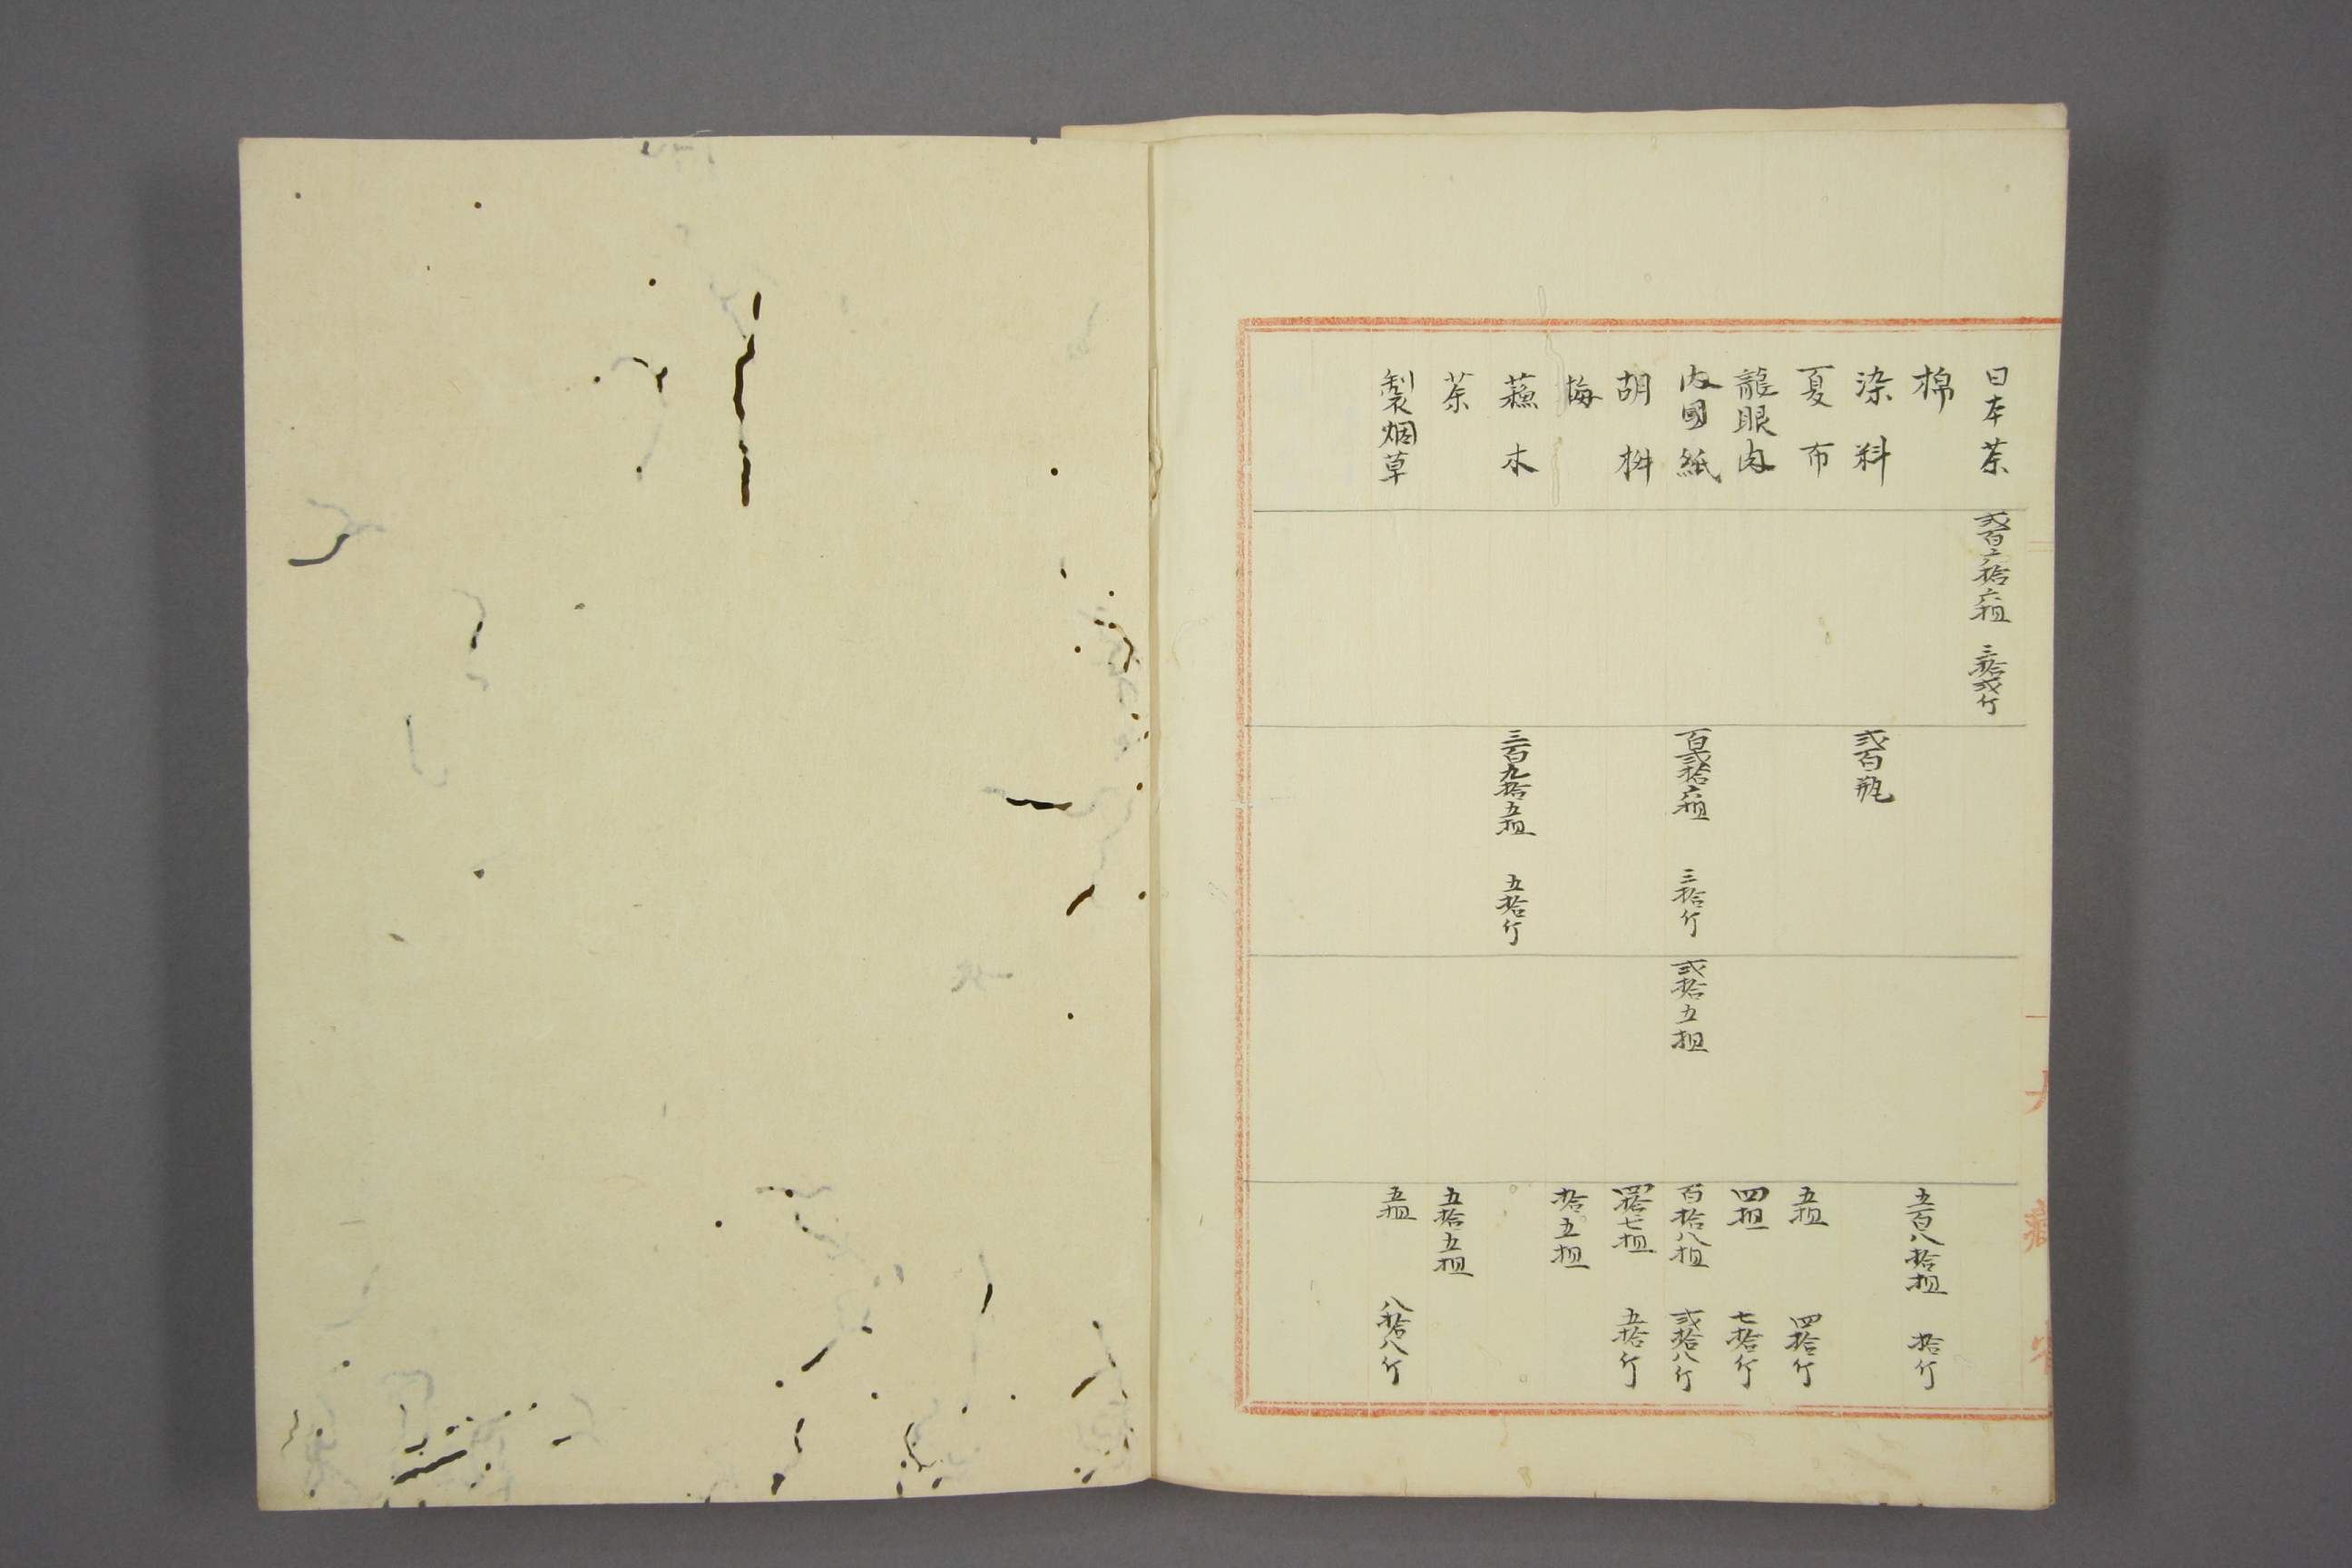 日本茶 弐百六拾六担 三拾弐斤
棉 五百八拾担 拾斤
染料 弐百瓶
夏布 五担 四拾斤
龍眼肉 四担 七拾斤
内國紙 百弐拾六担 三拾斤 弐拾五担 百拾八担 弐拾八斤
胡椒 四拾七担 五拾斤
梅 拾五担
蘓木 三百九拾五担 五拾斤
茶 五拾五担
製烟草 五担 八拾八斤